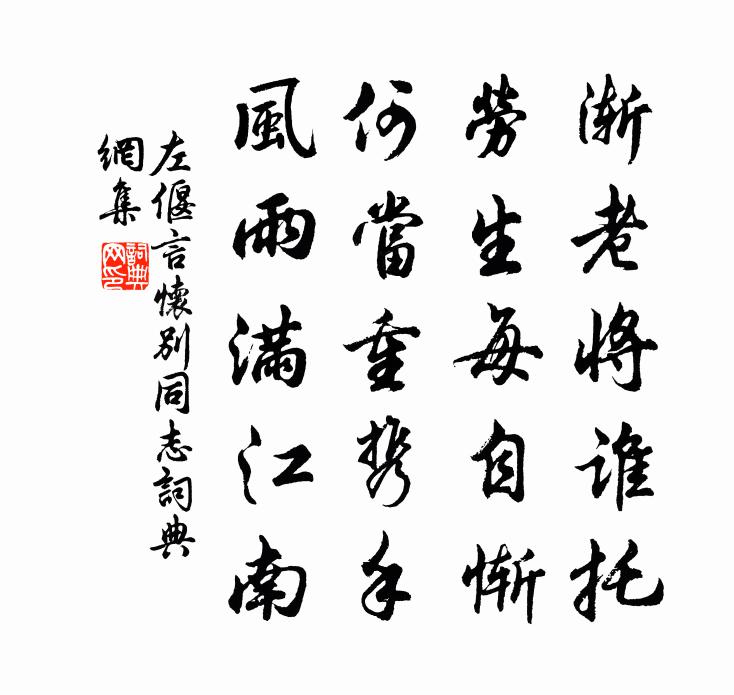 漸老將誰托
勞生每自慚
何當重携手
風雨滿江南
左偃言懷別同志詞典
網集
詞典网印